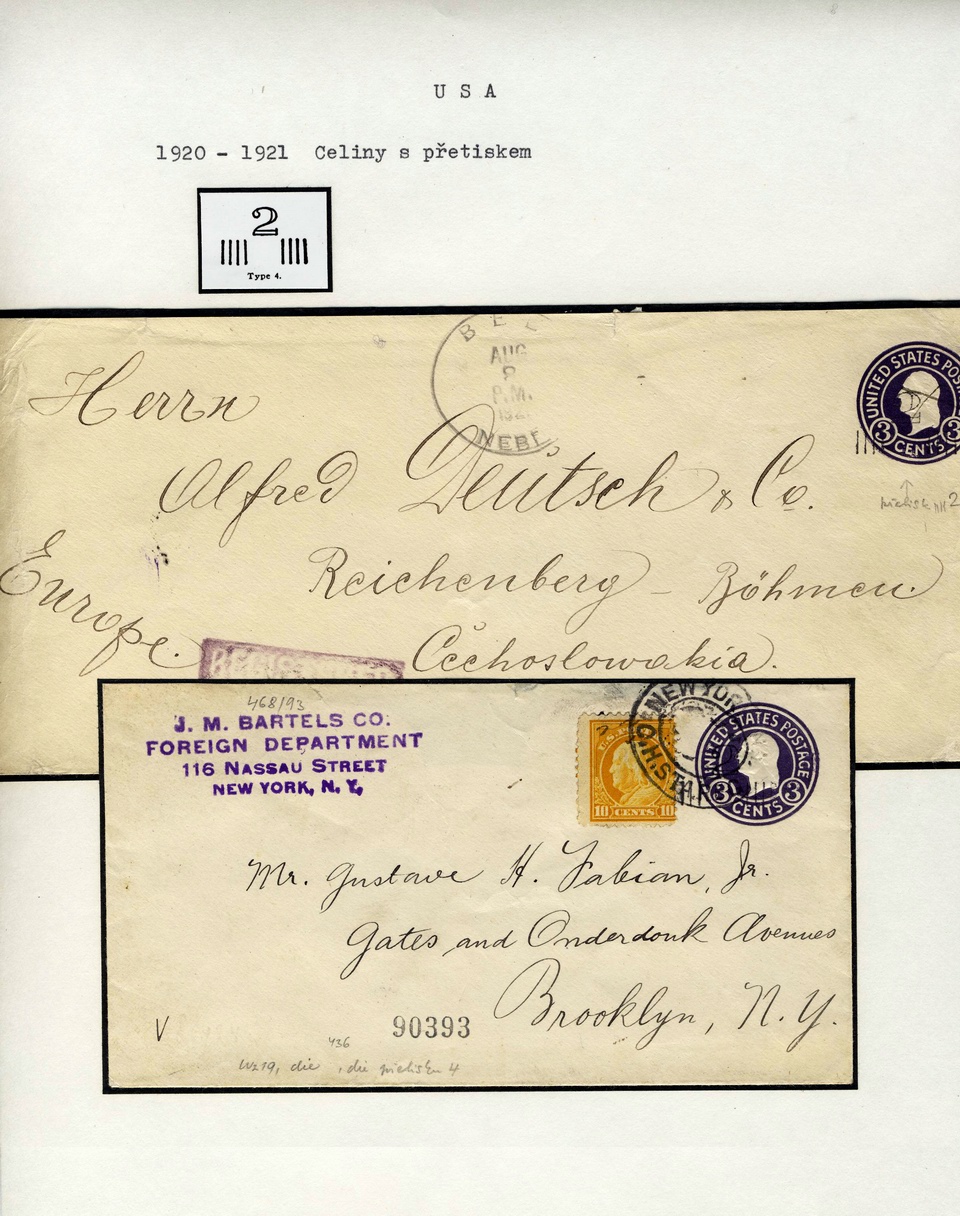 U S A
1920 - 1921 Celiny s přetiskem
2
Type 4.
BEL
AUG
P.M.
192
NEBR
UNITED STATES POSTA
3 CENTS 3
2
Herrn
Alfred Deutsch & Co.
Reichenberg - Böhmen.
Europe.
Čechoslowakia.
REGISTERED
468/93
J. M. BARTELS CO.
FOREIGN DEPARTMENT
116 NASSAU STREET
NEW YORK, N. Y.
NEW YORK
C.H.STA
10 CENTS 10
UNITED STATES POSTAGE
3 CENTS 3
Mr. Gustave H. Fabian, Jr.
Gates and Onderdonk Avenues
Brooklyn, N. Y.
V
90393
436
die , die přetisku 4